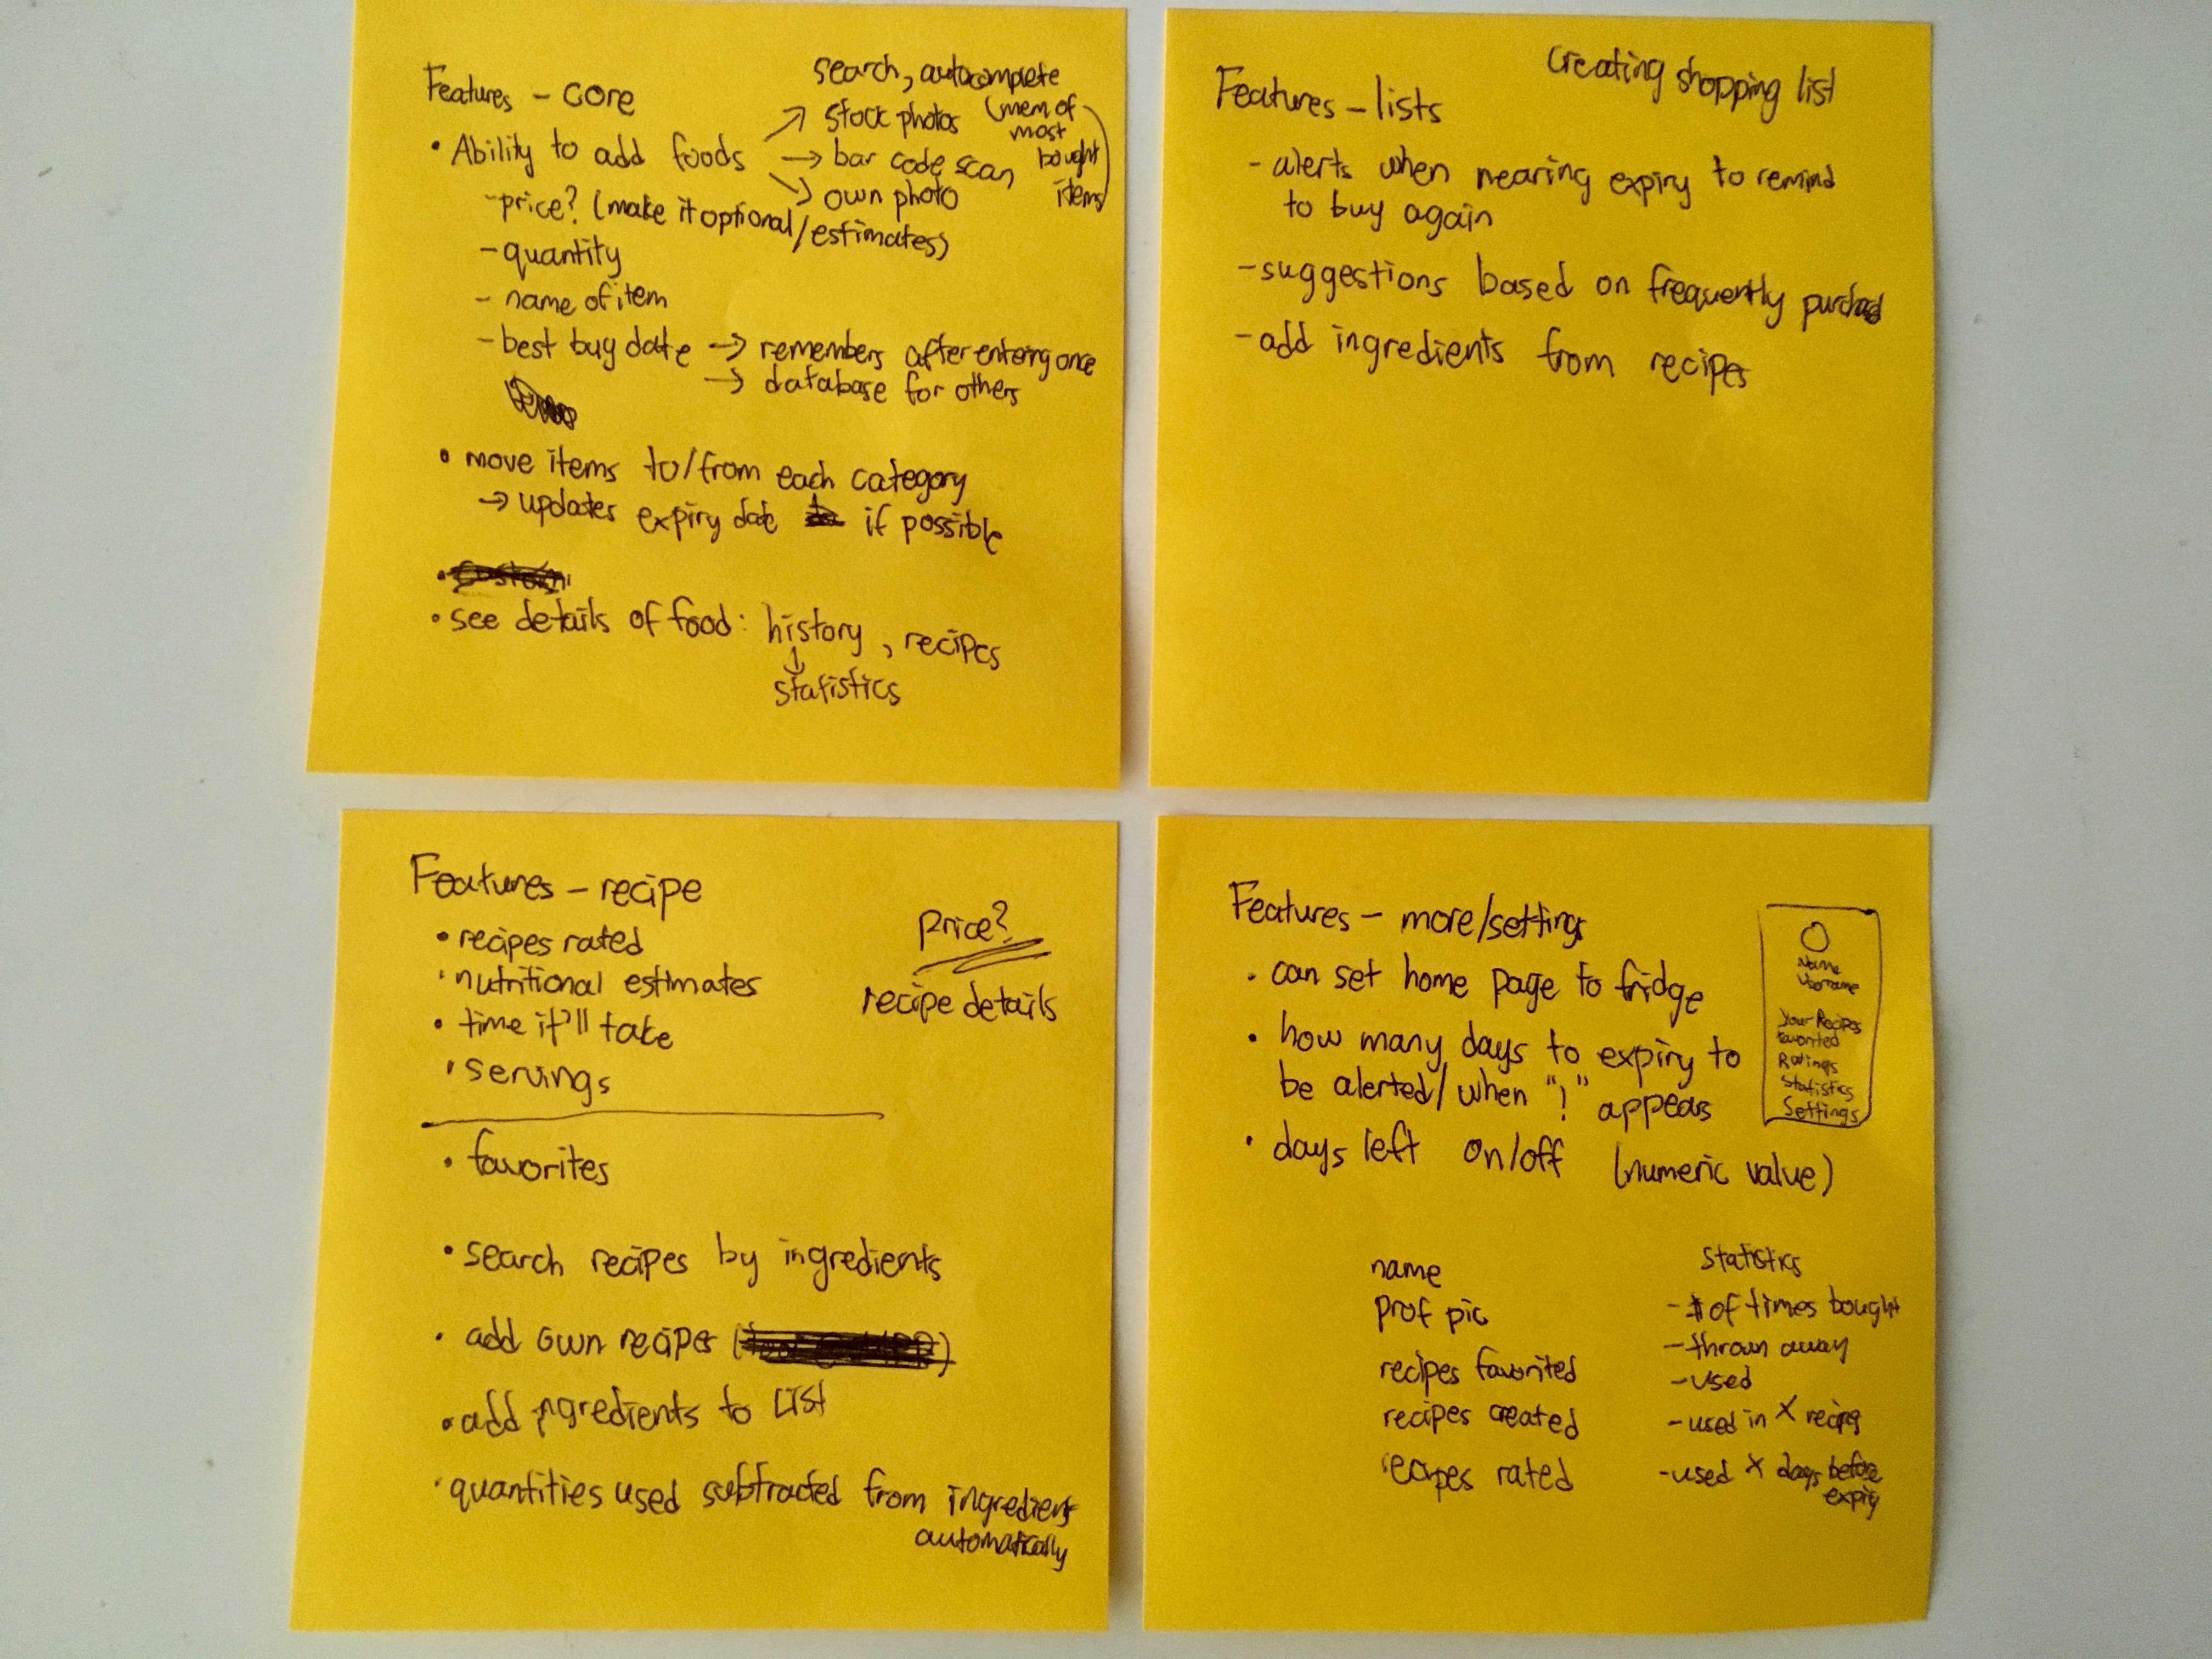 Features - core
search, autocomplete
(mem of most bought items)
• Ability to add foods
↗ stock photos
→ bar code scan
↘ own photo
- price? (make it optional/estimates)
- quantity
- name of item
- best buy date → remembers after entering once
→ database for others
• move items to/from each category
→ updates expiry date if possible
• see details of food: history, recipes
↓
statistics
Features - lists
Creating shopping list
- alerts when nearing expiry to remind
to buy again
- suggestions based on frequently
- add ingredients from recipes
Features - recipe
• recipes rated
• nutritional estimates
• time it'll take
• servings
Price?
recipe details
• favorites
• search recipes by ingredients
• add own recipes
• add ingredients to List
• quantities used subtracted from ingredient
automatically
Features - more/settings
• can set home page to fridge
• how many days to expiry to
be alerted/when "!" appears
• days left on/off (numeric value)
Name
Username
Your Recipes
Favorited
Ratings
Statistics
Settings
name
prof pic
recipes favorited
recipes created
recipes rated
Statistics
- # of times bought
- thrown away
- used
- used in X recipes
- used X days before
expiry